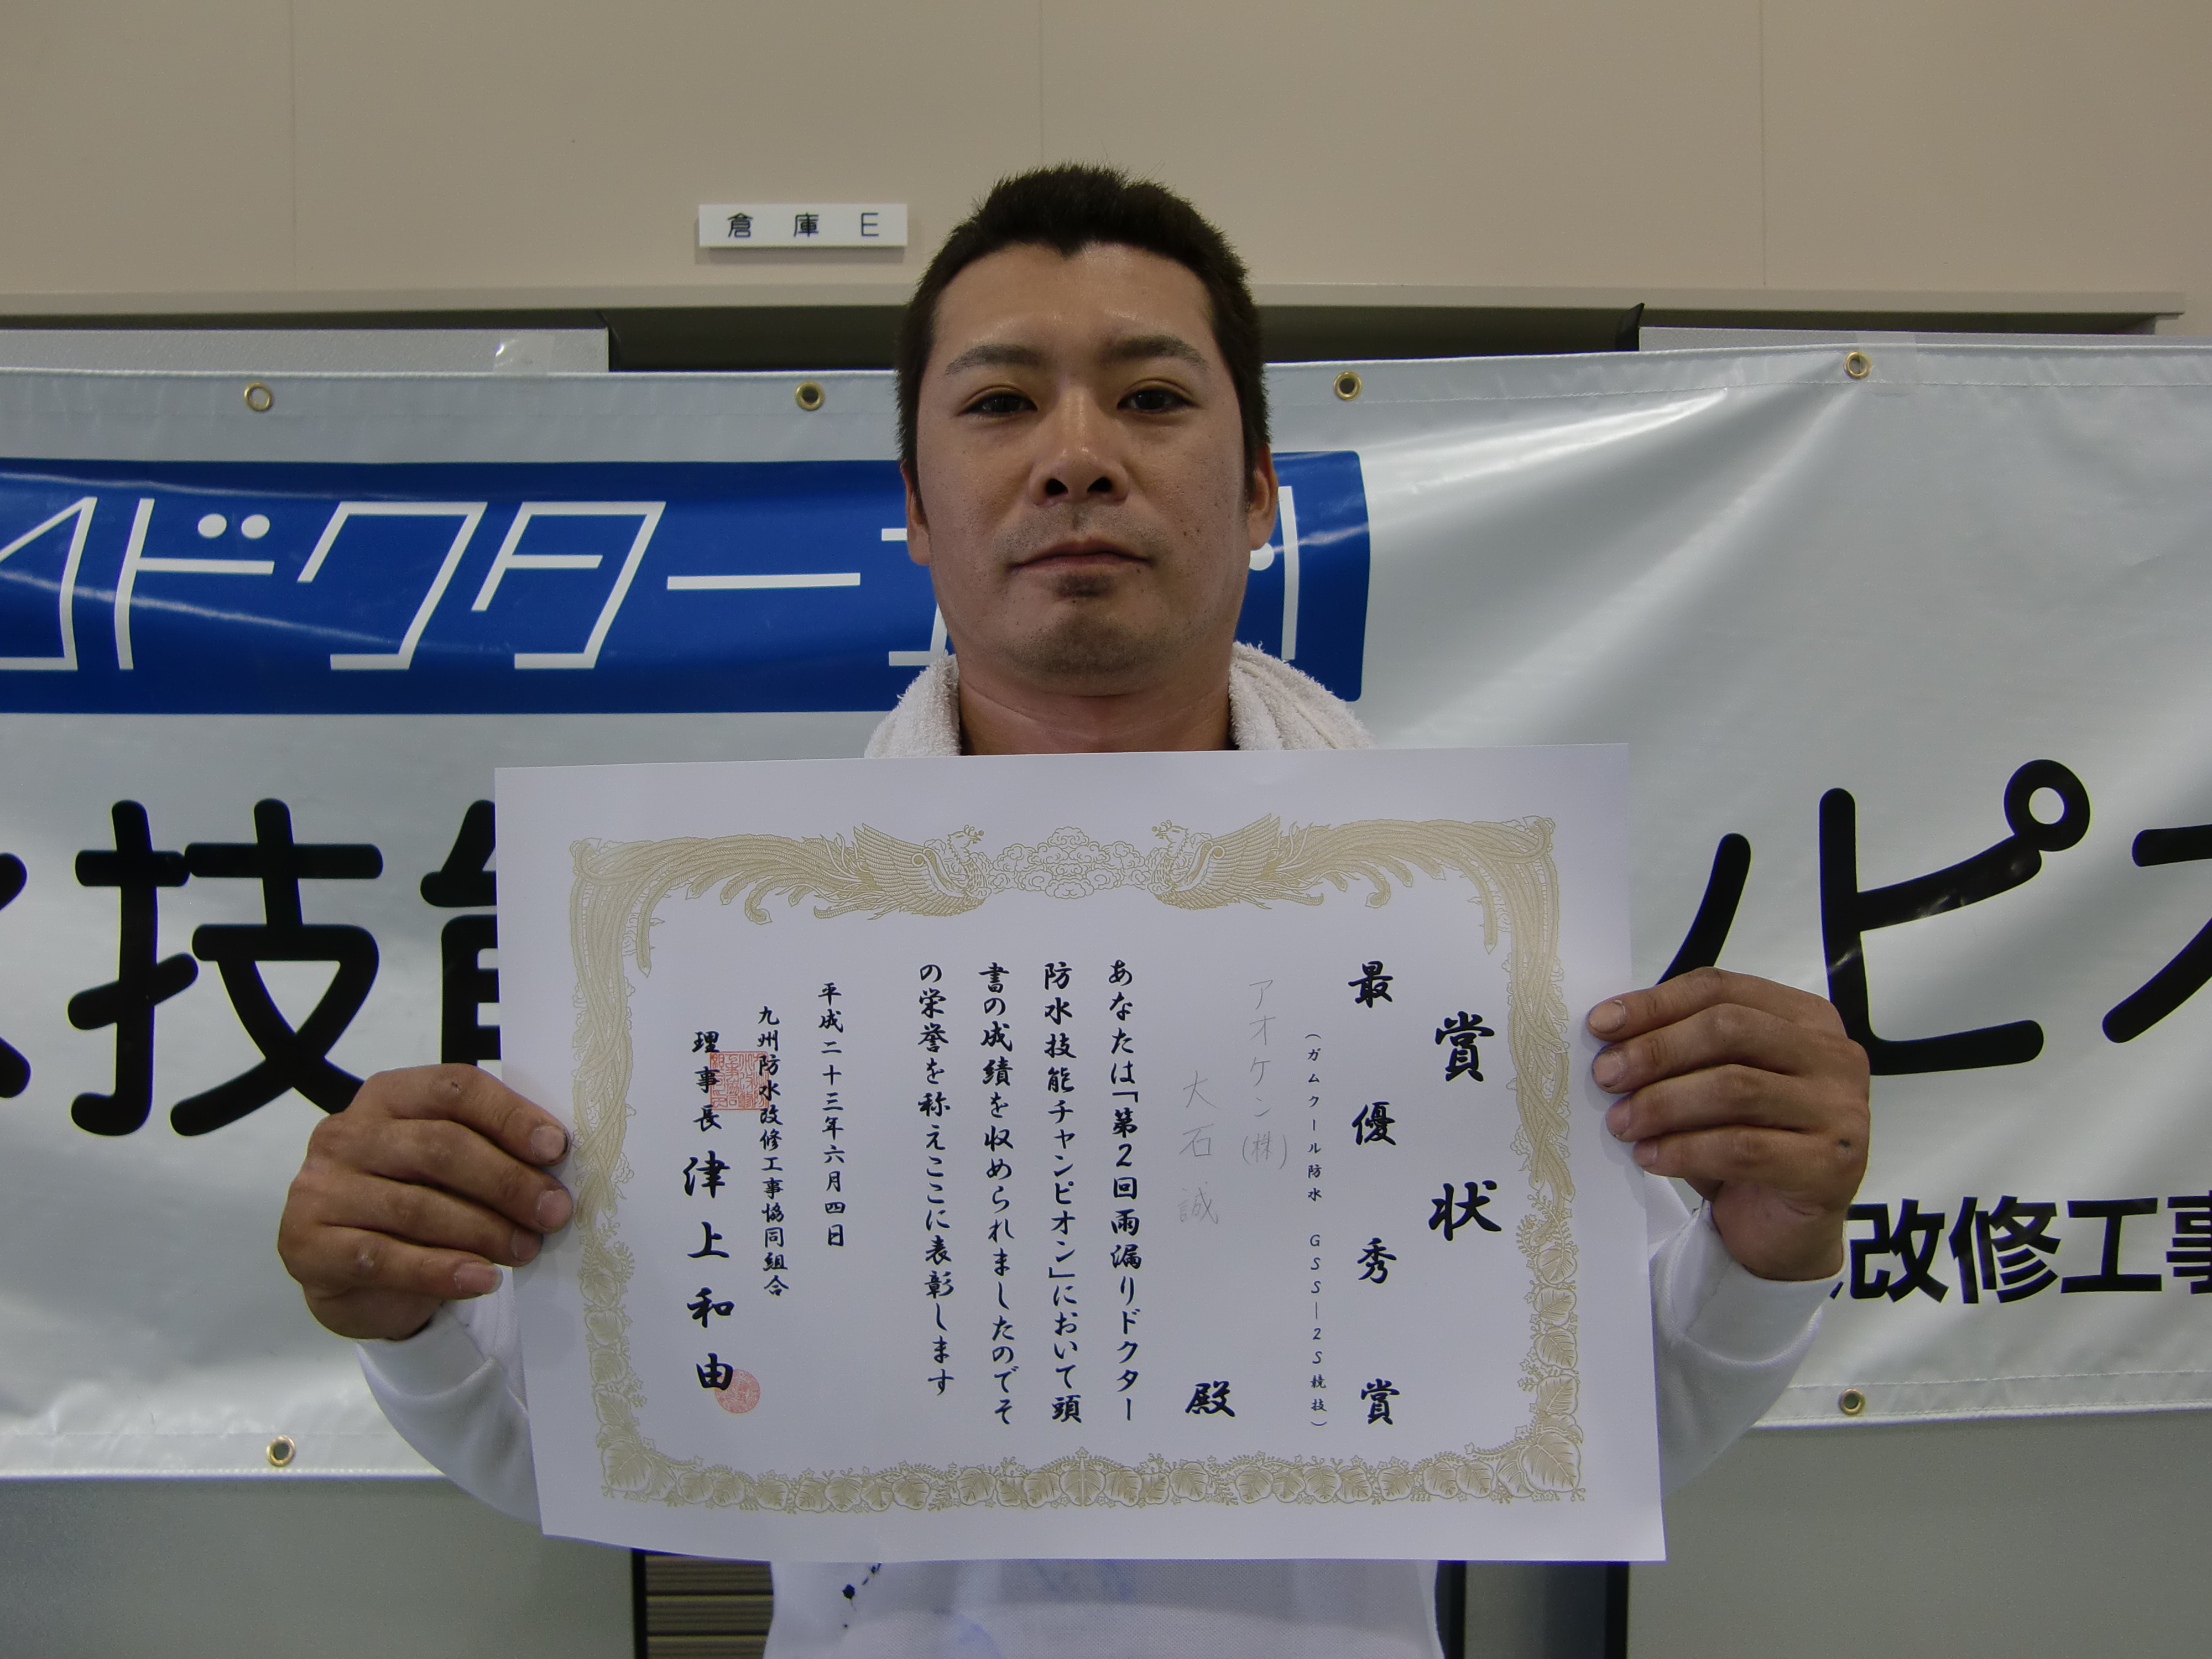 倉庫E
ドクター
技能
ピオ
改修工事
賞状
最優秀賞
(ガムクール防水 GSS-2S競技)
アオケン(株)
大石誠 殿
あなたは「第2回雨漏りドクター
防水技能チャンピオン」において頭
書の成績を収められましたのでそ
の栄誉を称えここに表彰します
平成二十三年六月四日
九州防水改修工事協同組合
理事長 津上和由